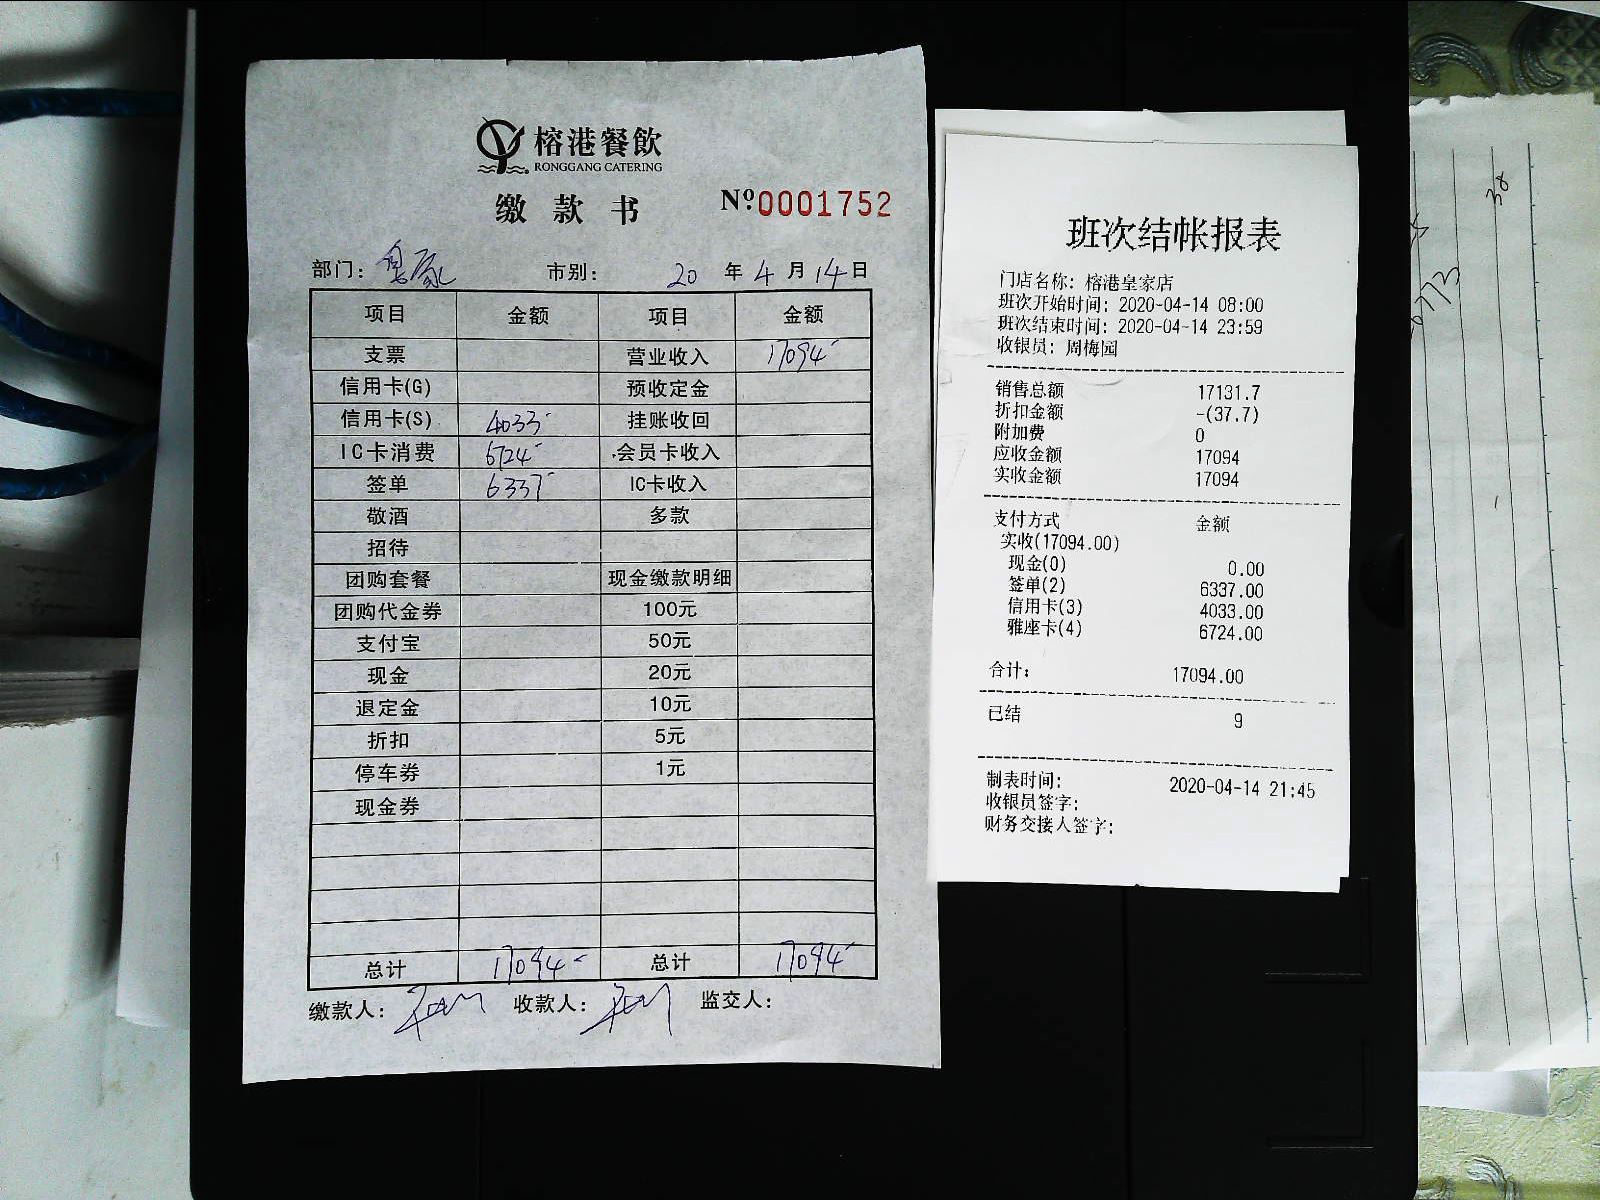 榕港餐飲
RONGGANG CATERING
缴款书 Nº0001752
部门：皇家 市别： 20年4月14日
项目 金额 项目 金额
支票 营业收入 17094
信用卡(G) 预收定金
信用卡(S) 4033 挂账收回
IC卡消费 6724 会员卡收入
签单 6337 IC卡收入
敬酒 多款
招待
团购套餐 现金缴款明细
团购代金券 100元
支付宝 50元
现金 20元
退定金 10元
折扣 5元
停车券 1元
现金券
总计 17094 总计 17094
缴款人： 收款人： 监交人：
班次结帐报表
门店名称：榕港皇家店
班次开始时间：2020-04-14 08:00
班次结束时间：2020-04-14 23:59
收银员：周梅园
销售总额 17131.7
折扣金额 -(37.7)
附加费 0
应收金额 17094
实收金额 17094
支付方式 金额
实收(17094.00)
现金(0) 0.00
签单(2) 6337.00
信用卡(3) 4033.00
雅座卡(4) 6724.00
合计： 17094.00
已结 9
制表时间： 2020-04-14 21:45
收银员签字：
财务交接人签字：
38